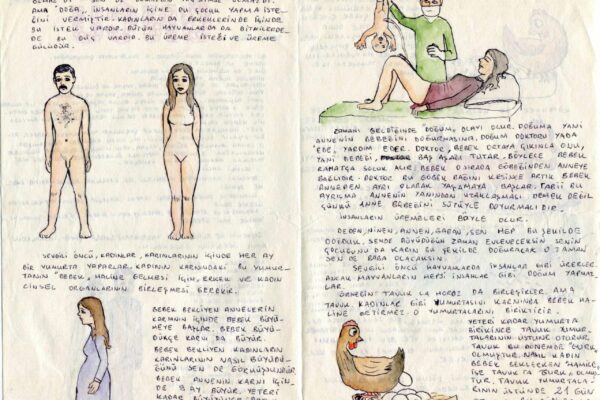 AMA DOĞA, İNSANLARIN İÇİNE BU ÇOCUK YAPMA İSTE-
ĞİNİ VERMİŞTİR. KADINLARIN DA ERKEKLERİNDE İÇİNDE
BU İSTEK VARDIR. BÜTÜN HAYVANLARDA DA BİTKİLERDE
DE BU GÜÇ VARDIR. BU ÜREME İSTEĞİ VE ÜREME
GÜCÜDÜR.
SEVGİLİ ÖNCÜ, KADINLAR, KARINLARININ İÇİNDE HER AY
BİR YUMURTA YAPARLAR. KADININ KARNINDAKİ BU YUMUR-
TANIN "BEBEK" HALİNE GELMESİ İÇİN, ERKEK VE KADIN
CİNSEL ORGANLARININ BİRLEŞMESİ GEREKİR.
BEBEK BEKLİYEN ANNELERİN
KARNININ İÇİNDE BEBEK BÜYÜ-
MEYE BAŞLAR. BEBEK BÜYÜ-
DÜKÇE KARNI DA BÜYÜR.
BEBEK BEKLİYEN KADINLARIN
KARINLARININ NASIL BÜYÜDÜ-
ĞÜNÜ SEN DE GÖRMÜŞSÜNDÜR.
BEBEK ANNENİN KARNI İÇİN-
DE 9 AY BÜYÜR. YETERİ
KADAR
ZAMANI GELDİĞİNDE DOĞUM OLAYI OLUR. DOĞUMA YANİ
ANNENİN BEBEĞİNİ DOĞURMASINA, DOĞUM DOKTORU YADA
"EBE" YARDIM EDER. DOKTOR, BEBEK ORTAYA ÇIKINCA ONU,
YANİ BEBEĞİ, BAŞ AŞAĞI TUTAR. BÖYLECE BEBEK
RAHATÇA SOLUK ALIR. BEBEK O SIRADA GÖBEĞİNDEN ANNEYE
BAĞLIDIR. DOKTOR BU GÖBEK BAĞINI KESİNCE ARTIK BEBEK
ANNEDEN AYRI OLARAK YAŞAMAYA BAŞLAR. TABİİ BU
AYRILMA ANNENİN YANINDAN UZAKLAŞMASI DEMEK DEĞİL
ÇÜNKÜ ANNE BEBEĞİNİ SÜTÜYLE DOYURMALIDIR.
İNSANLARIN ÜREMELERİ BÖYLE OLUR.
DEDEN, NİNEN, ANNEN, BABAN, SEN HEP BU ŞEKİLDE
DOĞDUK. SENDE BÜYÜDÜĞÜN ZAMAN EVLENECEKSİN SENİN
ÇOCUĞUNU DA KARIN BU ŞEKİLDE DOĞURACAK. O ZAMAN
SEN DE BABA OLACAKSIN.
SEVGİLİ ÖNCÜ HAYVANLARDA İNSANLAR GİBİ ÜRERLER.
ANCAK HAYVANLARIN HEPSİ İNSANLAR GİBİ DOĞUM YAPMAZ-
LAR.
ÖRNEĞİN TAVUK LA HOROZ DA BİRLEŞİRLER. AMA
TAVUK, KADINLAR GİBİ YUMURTASINI KARNINDA BEBEK HA-
LİNE GETİRMEZ. O YUMURTALARINI BİRİKTİRİR.
YETERİ KADAR YUMURTA
BİRİKİNCE TAVUK YUMUR-
TALARININ ÜSTÜNE OTURUR.
TAVUK BU DÖNEMDE "GURK"
OLMUŞTUR. NASIL KADIN
BEBEK BEKLERKEN "HAMİLE"
İSE TAVUK TA "GURK" OLMUŞ-
TUR. TAVUK YUMURTALA-
RININ ÜSTÜNDE 21 GÜN